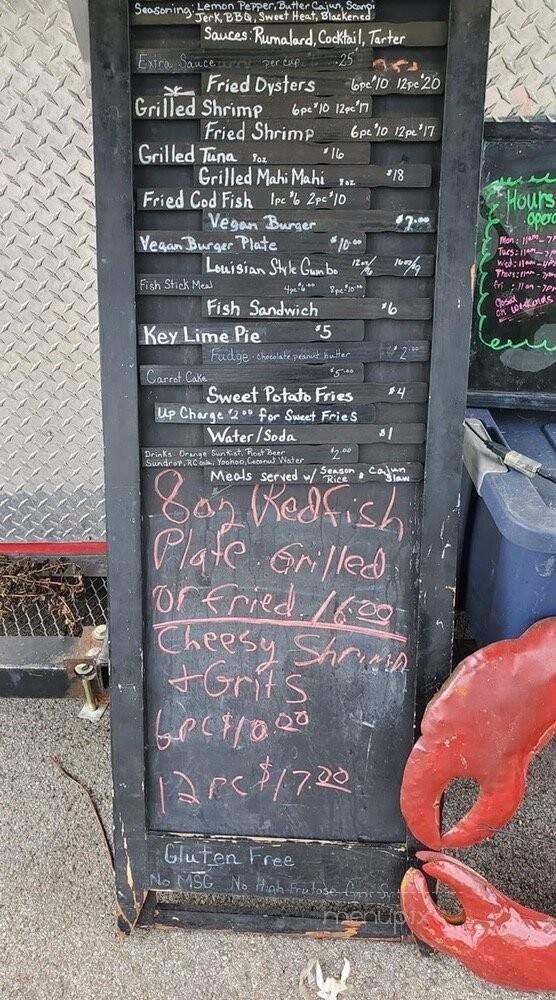 Seasoning: Lemon Pepper, Butter Cajun, Scampi
Jerk, BBQ, Sweet Heat, Blackened
Sauces: Rumalard, Cocktail, Tarter
Extra Sauce per cup .25
Fried Oysters 6pc $10 12pc $20
Grilled Shrimp 6pc $10 12pc $17
Fried Shrimp 6pc $10 12pc $17
Grilled Tuna 8oz $16
Grilled Mahi Mahi 8oz $18
Fried Cod Fish 1pc $6 2pc $10
Vegan Burger $7.00
Vegan Burger Plate $10.00
Louisian Style Gumbo 12oz/ 16oz/
Fish Stick Meal 4pc $6.00 8pc $10.00
Fish Sandwich $6
Key Lime Pie $5
Fudge - chocolate peanut butter $2.00
Carrot Cake $5.00
Sweet Potato Fries $4
Up Charge $2.00 for Sweet Fries
Water/Soda $1
Drinks: Orange Sunkist, Root Beer $2.00
Sundrop, RC Cola, Yoohoo, Coconut Water
Meals Served w/ Season Rice & Cajun Slaw
8oz Redfish
Plate. Grilled
or fried. 16.00
Cheesy Shrimp
+ Grits
6pc $10.00
12 pc $17.00
Gluten Free
No MSG No High Frutose Corn
menupix
Hours
open
Mon: 11am - 7
Tues: 11am - 7
Wed: 11am -
Thurs: 11am - 7
Fri: 11am - 7pm
Closed
on weekends